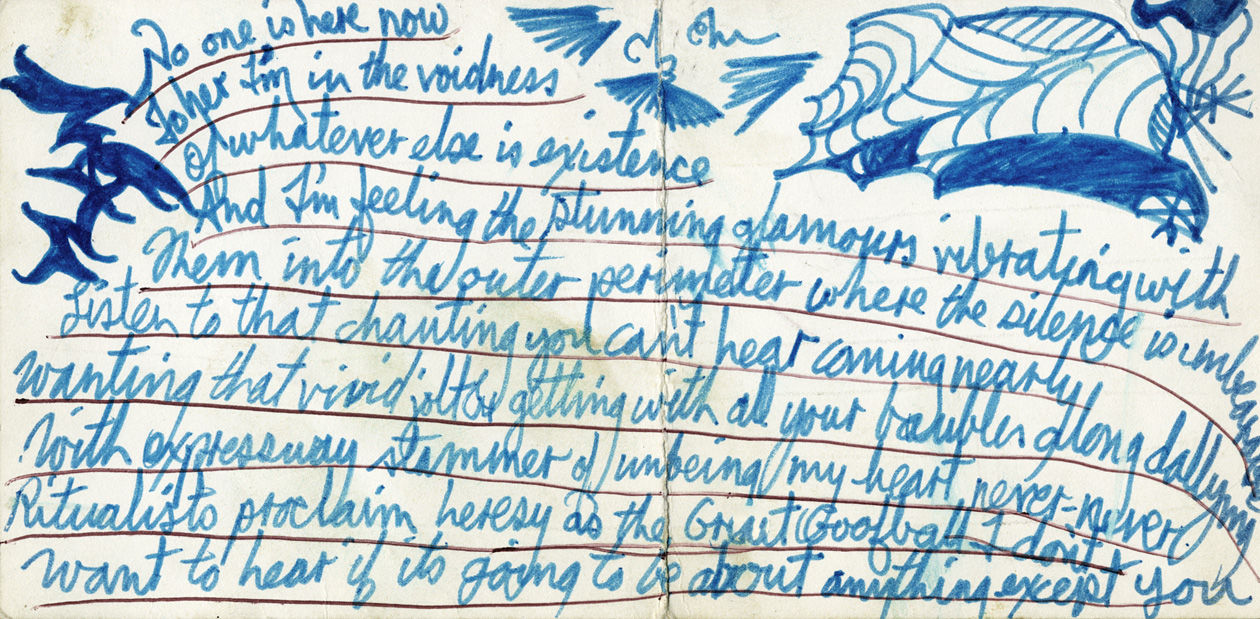 No one is here now
To her I'm in the voidness
of whatever else is existence
And I'm feeling the stunning glamours vibrating with
Them into the outer perimeter where the silence is
Listen to that chanting you can't hear coming nearly
wanting that vivid jolt of getting with all your baubles along
With expressway stammer of unbeing my heart never-never
Ritualists proclaim heresy as the Great Goofball I don't
want to hear if its going to be about anything except you